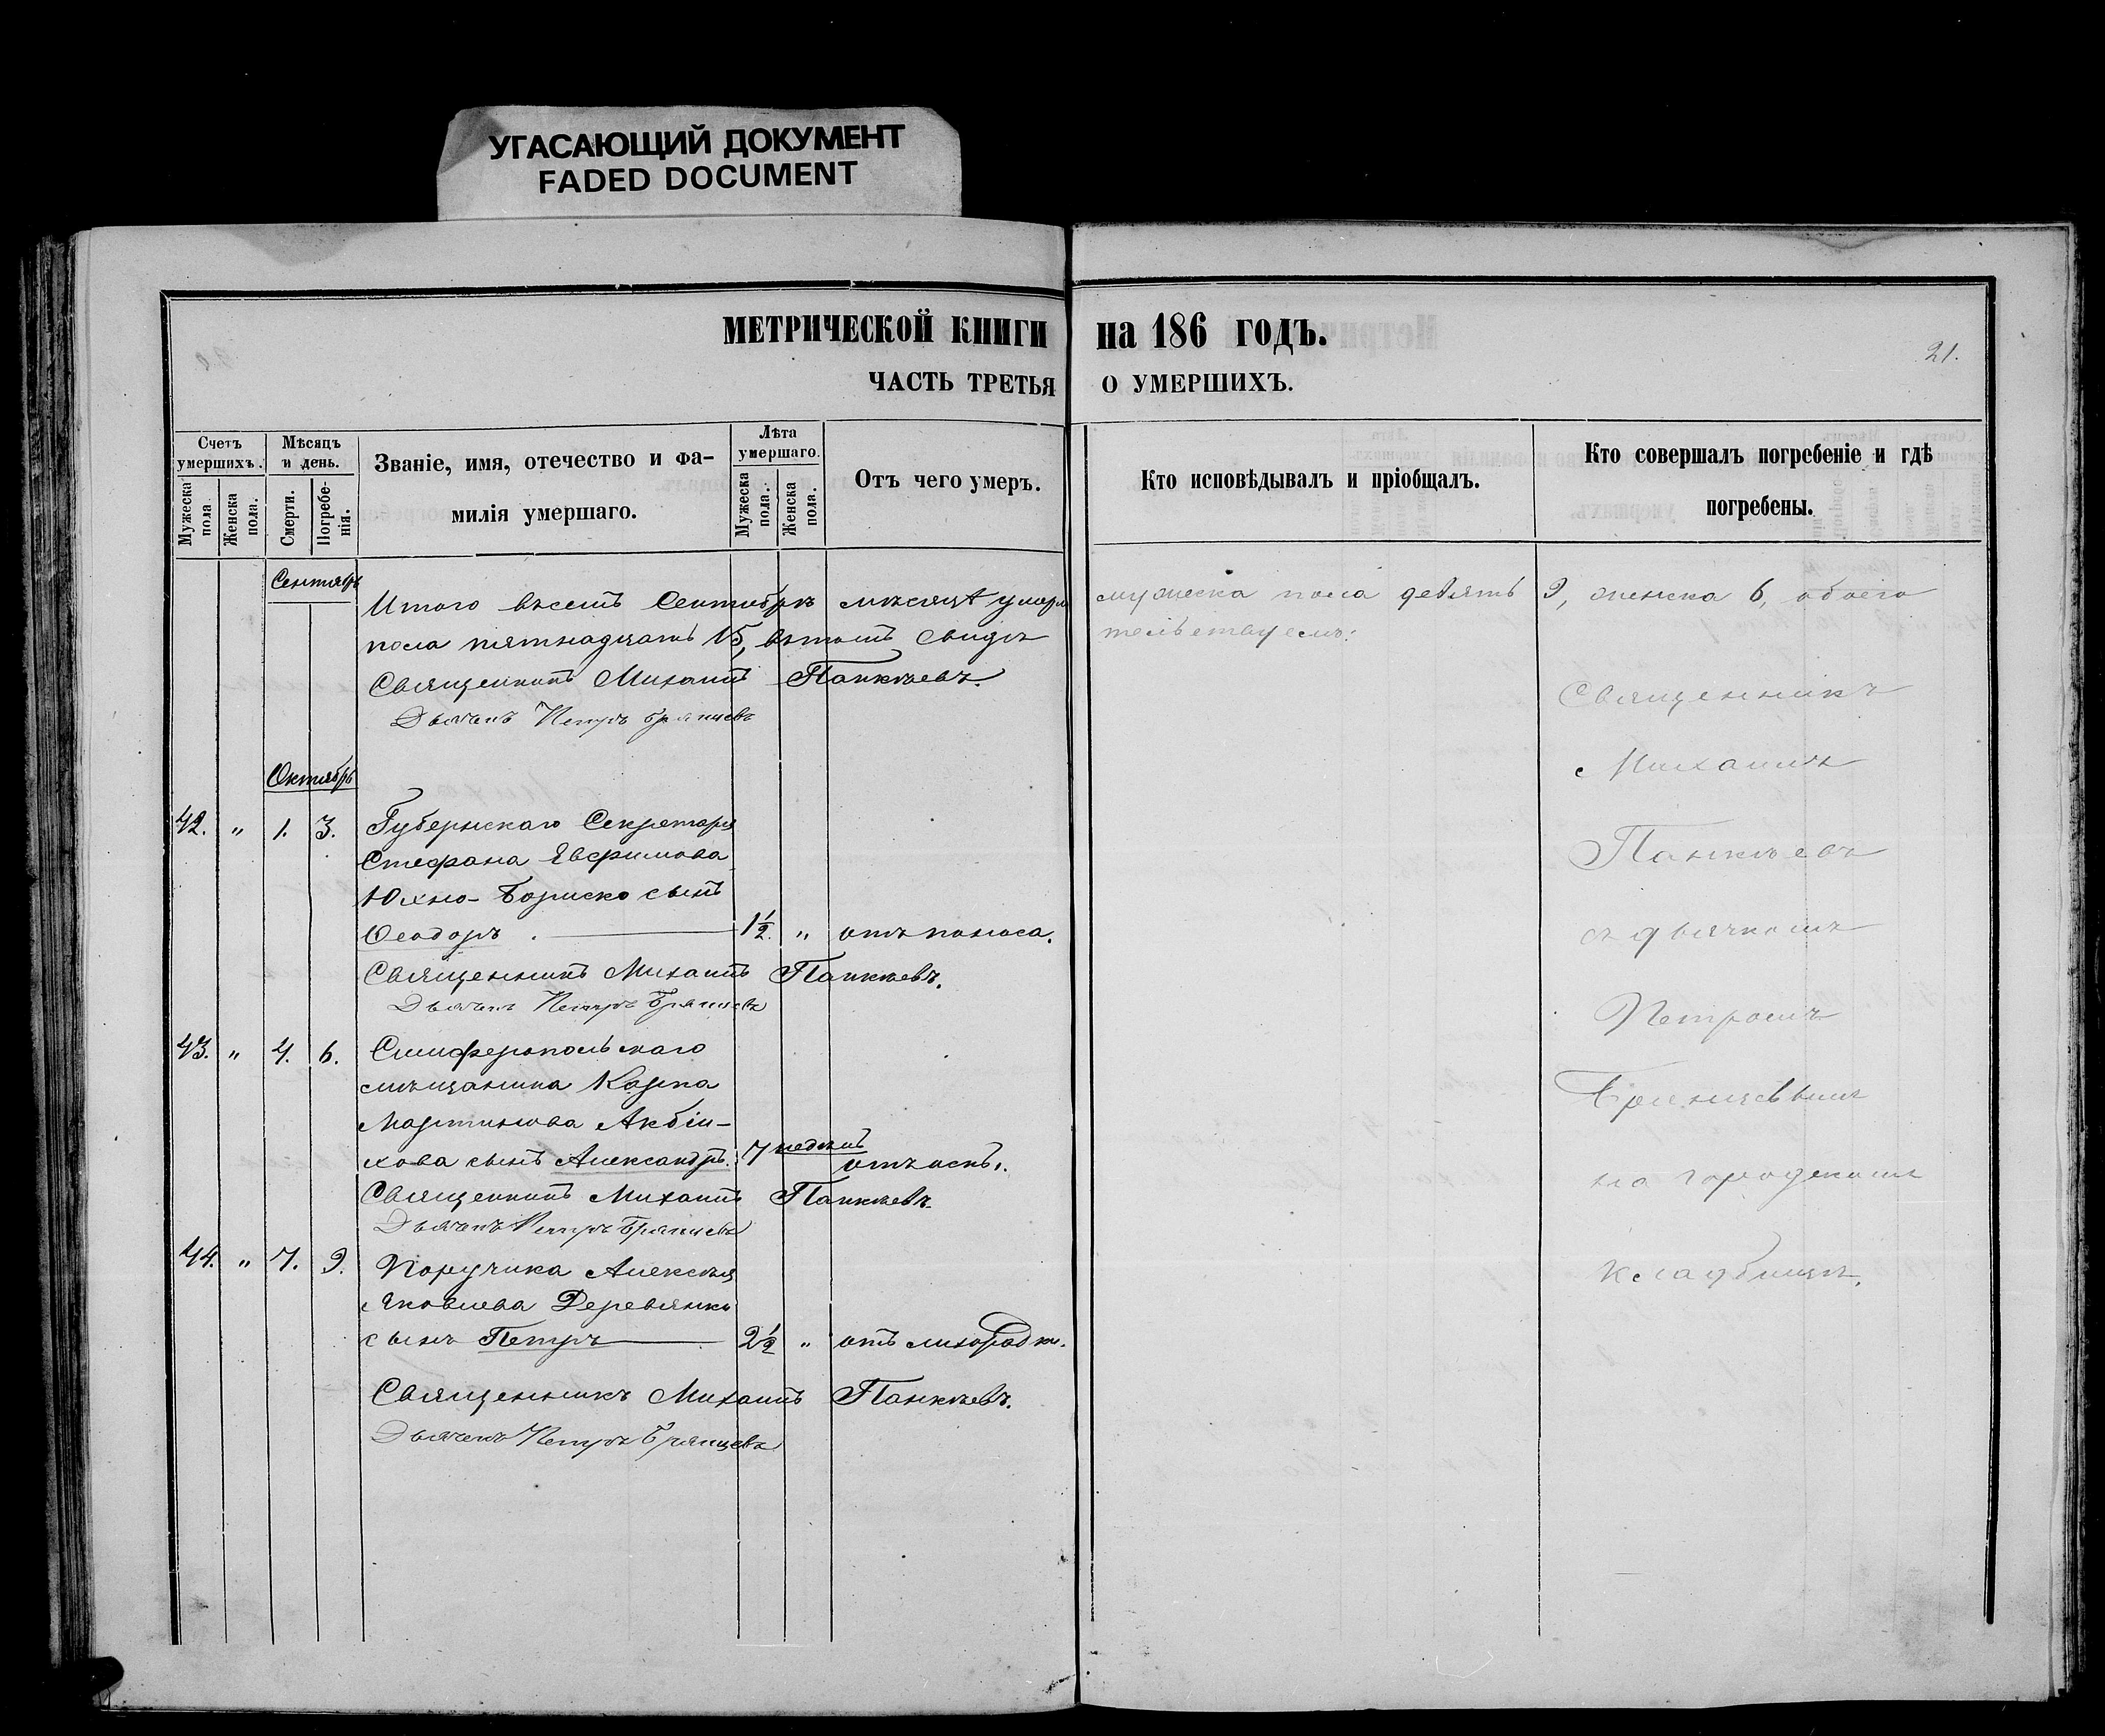 УГАСАЮЩИЙ ДОКУМЕНТ
FADED DOCUMENT
МЕТРИЧЕСКОЙ КНИГИ на 186 ГОДЪ.
21.
ЧАСТЬ ТРЕТЬЯ О УМЕРШИХЪ.
Счетъ умершихъ.
Мужеска пола
Женска пола.
Мѣсяцъ и день.
Смерти.
Погребенія.
Званіе, имя, отечество и фамилія умершаго.
Лѣта умершаго.
Мужеска пола.
Женска пола.
Отъ чего умеръ.
Кто исповѣдывалъ и пріобщалъ.
Кто совершалъ погребеніе и гдѣ
погребены.
Сентябрь
Итого въ семъ Сентябрѣ мѣсяцѣ умерло мужеска пола девять 9, женска 6, обоего
пола пятнадцать 15, въ томъ свидѣтельствуемъ:
Священникъ Михаилъ Панкѣевъ.
Дьячекъ Петръ Брянцевъ
Октябрь
42. " 1. 3. Губернскаго Секретаря
Стефана Евфимова
Юхно-Бориско сынъ
Ѳеодоръ. 1½. " отъ поноса.
Священникъ Михаилъ Панкѣевъ.
Дьячекъ Петръ Брянцевъ
43. " 4. 6. Симферопольскаго
мѣщанина Карпа
Мартинова
сынъ Александръ. 7 недѣль отъ оспы.
Священникъ Михаилъ Панкѣевъ.
Дьячекъ Петръ Брянцевъ
44. " 7. 9. Поручика Алексѣя
Яковлева Деревянко
сынъ Петръ 2½ " отъ лихорадки.
Священникъ Михаилъ Панкѣевъ.
Дьячекъ Петръ Брянцевъ
Священникъ
Михаилъ
Панкѣевъ
съ дьячкомъ
Петромъ
Брянцевымъ
на городскомъ
кладбищѣ.